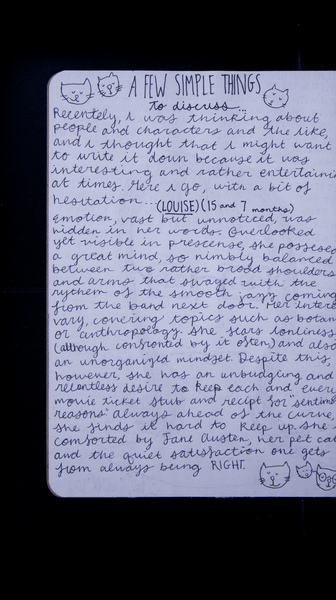 A FEW SIMPLE THINGS
to discuss...
Recently, i was thinking about
people and characters and the like,
and i thought that i might want
to write it down because it was
interesting and rather entertaini
at times. Here i go, with a bit of
hesitation... (LOUISE) (15 and 7 months)
Emotion, vast but unnoticed, was
hidden in her words. Overlooked
yet visible in prescense, she possesed
a great mind, so nimbly balanced
between two rather broad shoulders
and arms that swayed with the
rythem of the smooth jazz coming
from the band next door. Her intere
vary, covering topics such as botan
or anthropology. She fears lonliness
(although confronted by it often,) and also
an unorganized mindset. Despite this,
however, she has an unbudging and
relentless desire to keep each and ever
movie ticket stub and recipt for "sentime
reasons" always ahead of the curve,
she finds it hard to keep up. She
comforted by Jane Austen, her pet cat
and the quiet satisfaction one gets
from always being RIGHT.